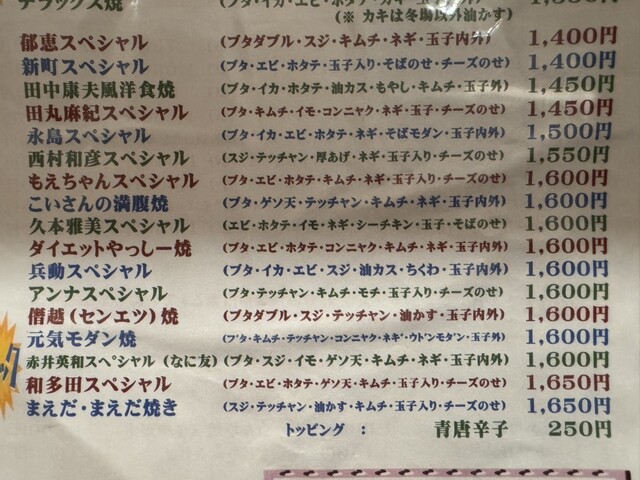 デラックス焼 (ブタ・イカ・エビ・ホタテ・カキ・
(※ カキは冬場以外油かす)
郁恵スペシャル (ブタダブル・スジ・キムチ・ネギ・玉子内外) 1,400円
新町スペシャル (ブタ・エビ・ホタテ・玉子入り・そばのせ・チーズのせ) 1,400円
田中康夫風洋食焼 (ブタ・イカ・ホタテ・油カス・もやし・キムチ・玉子外) 1,450円
田丸麻紀スペシャル (ブタ・キムチ・イモ・コンニャク・ネギ・玉子・チーズのせ) 1,450円
永島スペシャル (ブタ・イカ・エビ・ホタテ・ネギ・そばモダン・玉子内外) 1,500円
西村和彦スペシャル (スジ・テッチャン・厚あげ・ネギ・玉子入り・チーズのせ) 1,550円
もえちゃんスペシャル (ブタ・エビ・ホタテ・キムチ・ネギ・玉子入り・チーズのせ) 1,600円
こいさんの満腹焼 (ブタ・ゲソ天・テッチャン・キムチ・ネギ・玉子内外) 1,600円
久本雅美スペシャル (エビ・ホタテ・イモ・ネギ・シーチキン・玉子・そばのせ) 1,600円
ダイエットやっしー焼 (ブタ・エビ・ホタテ・コンニャク・キムチ・ネギ・玉子内外) 1,600円
兵動スペシャル (ブタ・イカ・エビ・スジ・油カス・ちくわ・玉子内外) 1,600円
アンナスペシャル (ブタ・テッチャン・キムチ・モチ・玉子入り・チーズのせ) 1,600円
僭越(センエツ)焼 (ブタダブル・スジ・テッチャン・油かす・玉子内外) 1,600円
元気モダン焼 (ブタ・キムチ・テッチャン・コンニャク・ネギ・ウドンモダン・玉子外) 1,600円
赤井英和スペシャル(なに友) (ブタ・スジ・イモ・ゲソ天・キムチ・ネギ・玉子内外) 1,600円
和多田スペシャル (ブタ・エビ・ホタテ・ゲソ天・キムチ・玉子入り・チーズのせ) 1,650円
まえだ・まえだ焼き (スジ・テッチャン・油かす・キムチ・玉子入り・チーズのせ) 1,650円
トッピング : 青唐辛子 250円